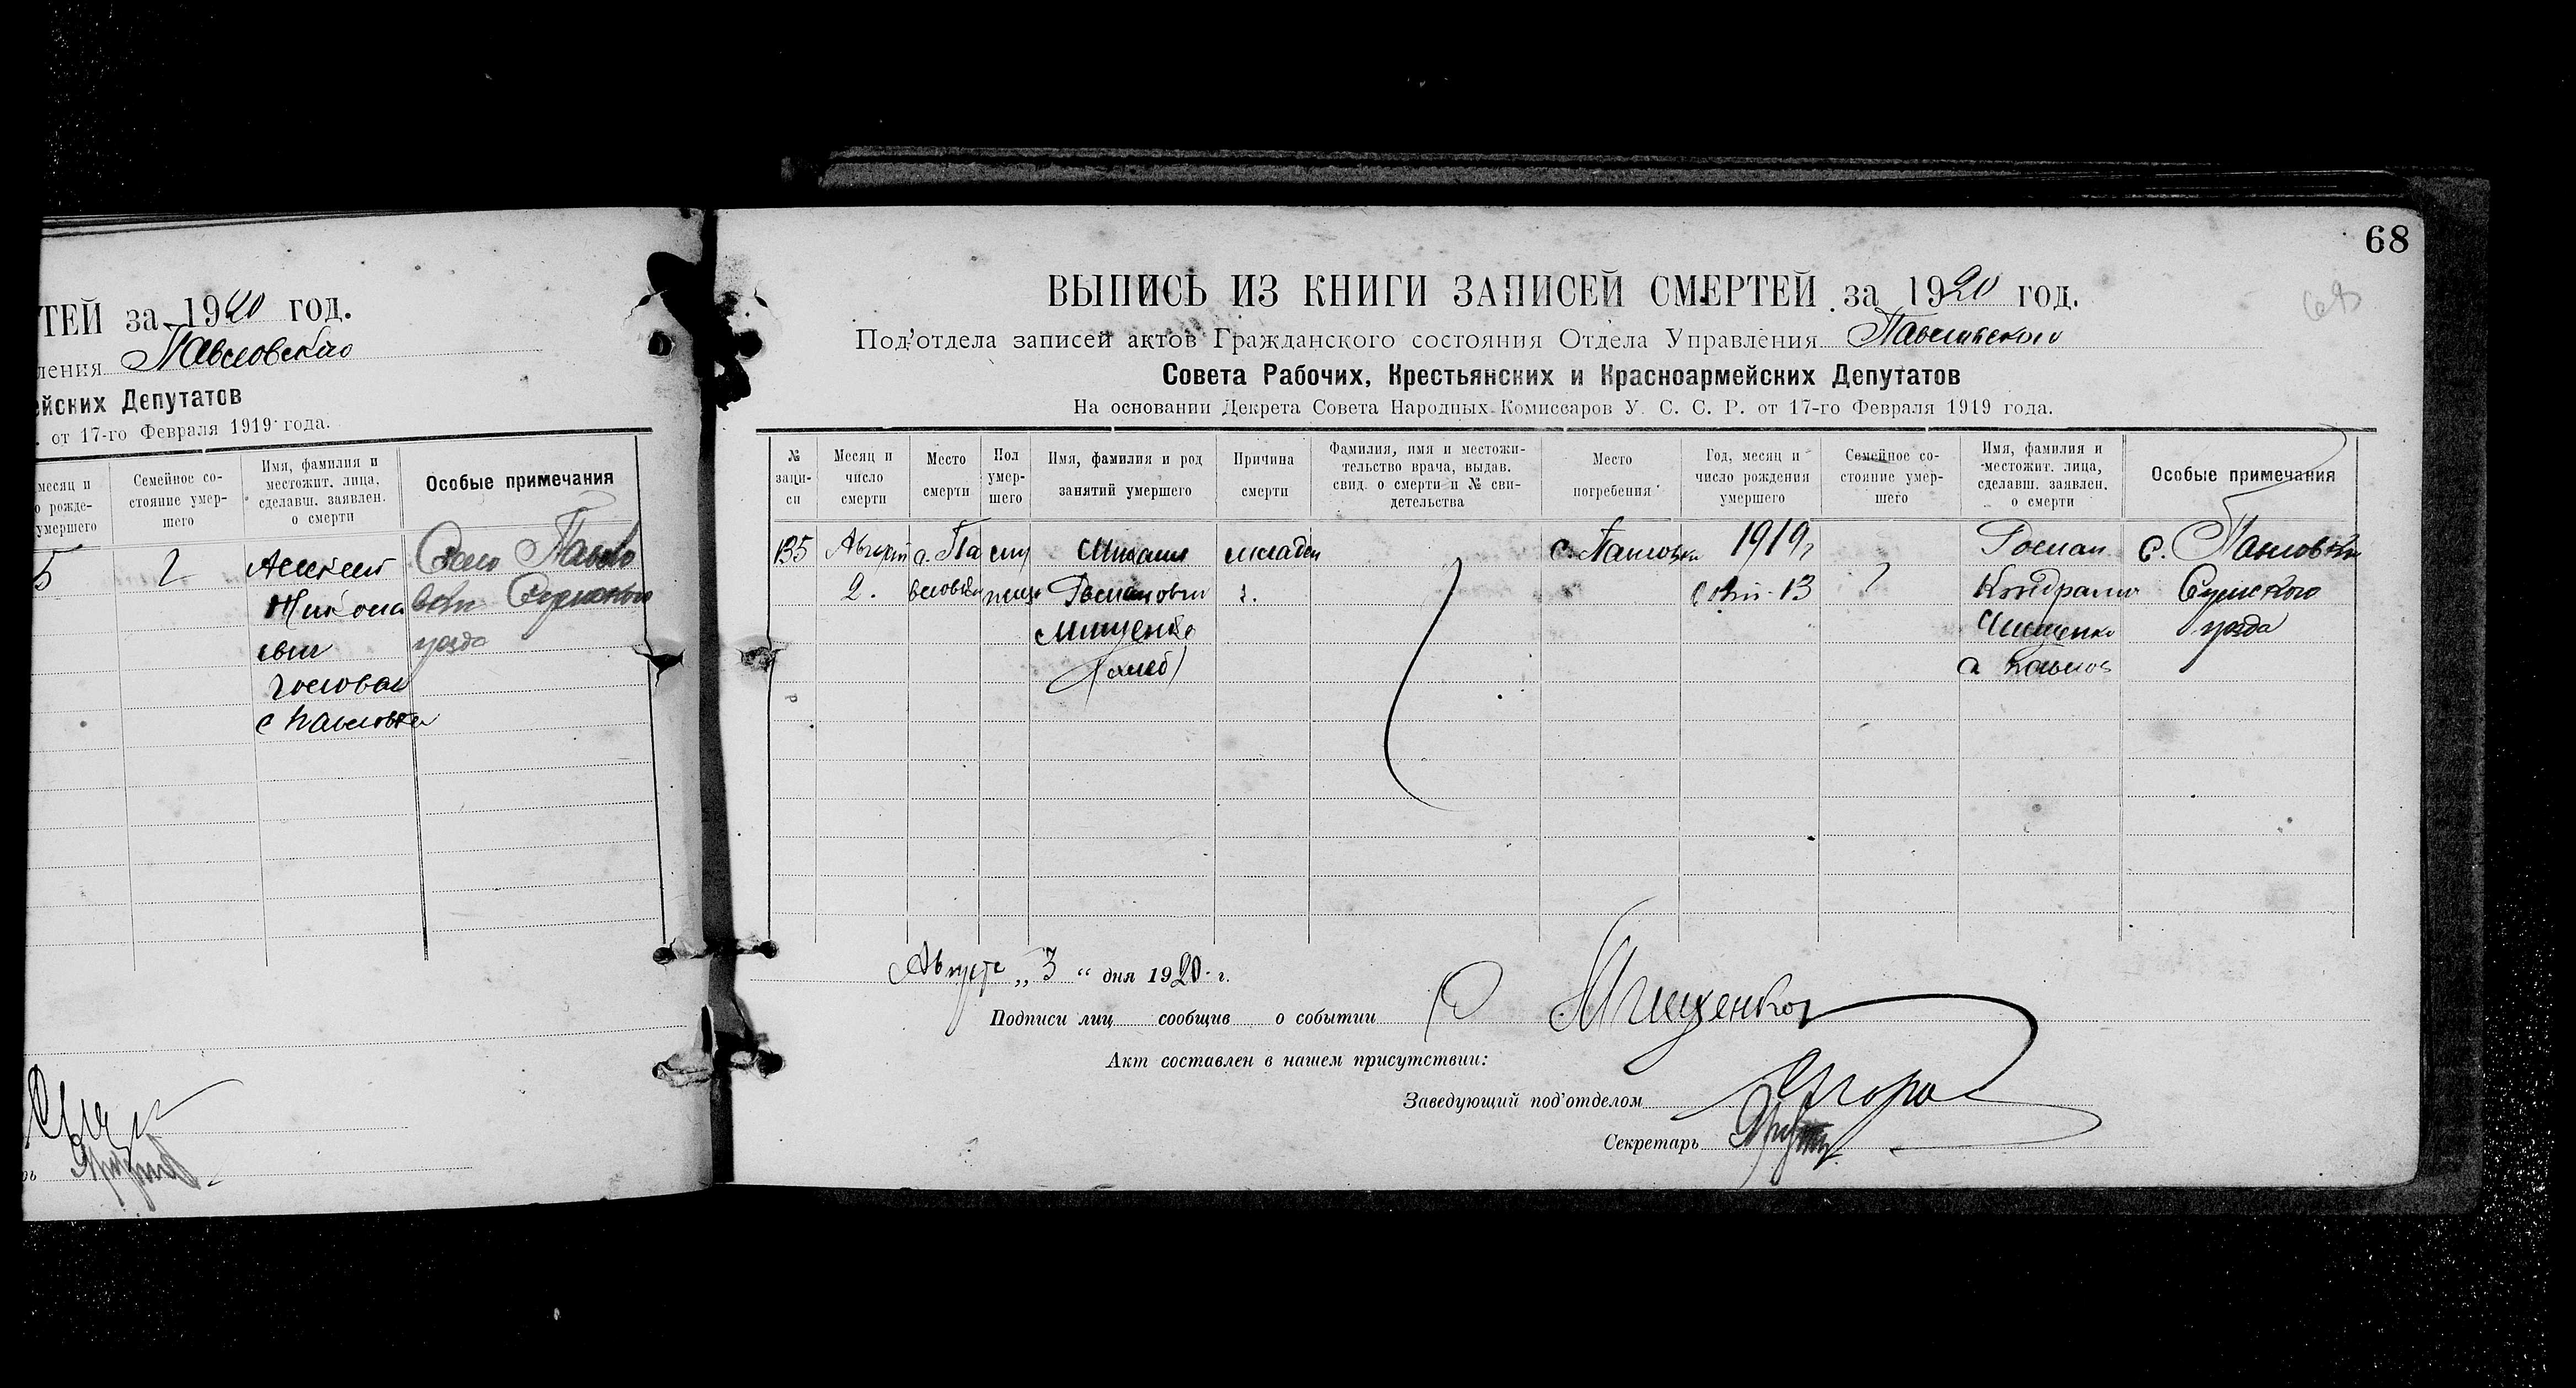 ТЕЙ за 1920 год.
ления Павловского
ейских Депутатов
. от 17-го Февраля 1919 года.
месяц и
о рожде-
умершего
Семейное со-
стояние умер-
шего
Имя, фамилия и
местожит. лица,
сделавш. заявлен.
о смерти
Особые примечания
5
2
Алексей
Николае
вич
Головач
с Павловки
Село Павло
вки Сумского
уезда
68
ВЫПИСЬ ИЗ КНИГИ ЗАПИСЕЙ СМЕРТЕЙ за 1920 год.
Под'отдела записей актов Гражданского состояния Отдела Управления Павловского
Совета Рабочих, Крестьянских и Красноармейских Депутатов
На основании Декрета Совета Народных Комиссаров У. С. С. Р. от 17-го Февраля 1919 года.
№
запи-
си
Месяц и
число
смерти
Место
смерти
Пол
умер-
шего
Имя, фамилия и род
занятий умершего
Причина
смерти
Фамилия, имя и местожи-
тельство врача, выдав.
свид. о смерти и № сви-
детельства
Место
погребения
Год, месяц и
число рождения
умершего
Семейное со-
стояние умер-
шего
Имя, фамилия и
местожит. лица,
сделавш. заявлен.
о смерти
Особые примечания
135
Август
2.
с. Па
вловка
Михаил
Романович
Мищенко
(хлеб)
младен
с. Павловка
1919
13
Роман
Кондратов
Мищенко
с Павлов
с. Павловки
Сумского
уезда
Августа „ 3 “ дня 1920 г.
Подписи лиц сообщив о событии Р Мищенко
Акт составлен в нашем присутствии:
Заведующий под'отделом
Секретарь